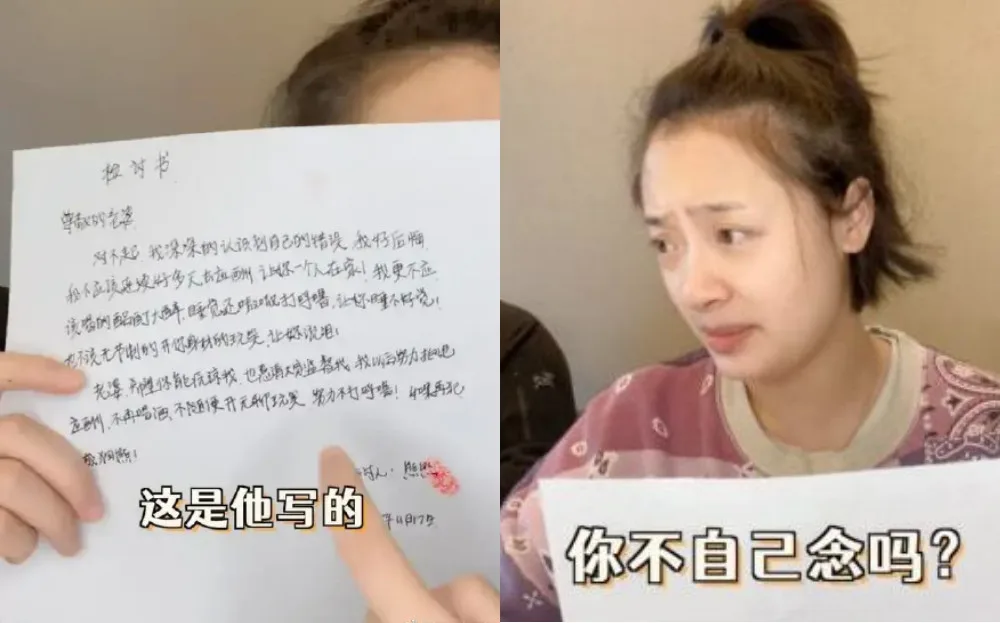 检讨书
尊敬的老婆
对不起，我深深的认识到自己的错误，我好后悔
我不应该连续好多天去应酬，让你一个人在家！我更不应
该喝的酩酊大醉，睡觉还打呼噜，让你睡不好觉！
也不该无节制的开你身材的玩笑，让你沮丧！
老婆，希望你能原谅我，也恳请大家监督我，我以后努力拒绝
应酬，不再喝酒，不随便开无聊玩笑，努力不打呼噜！如果再犯
讨人：熊熊
年11月17日
这是他写的
你不自己念吗？